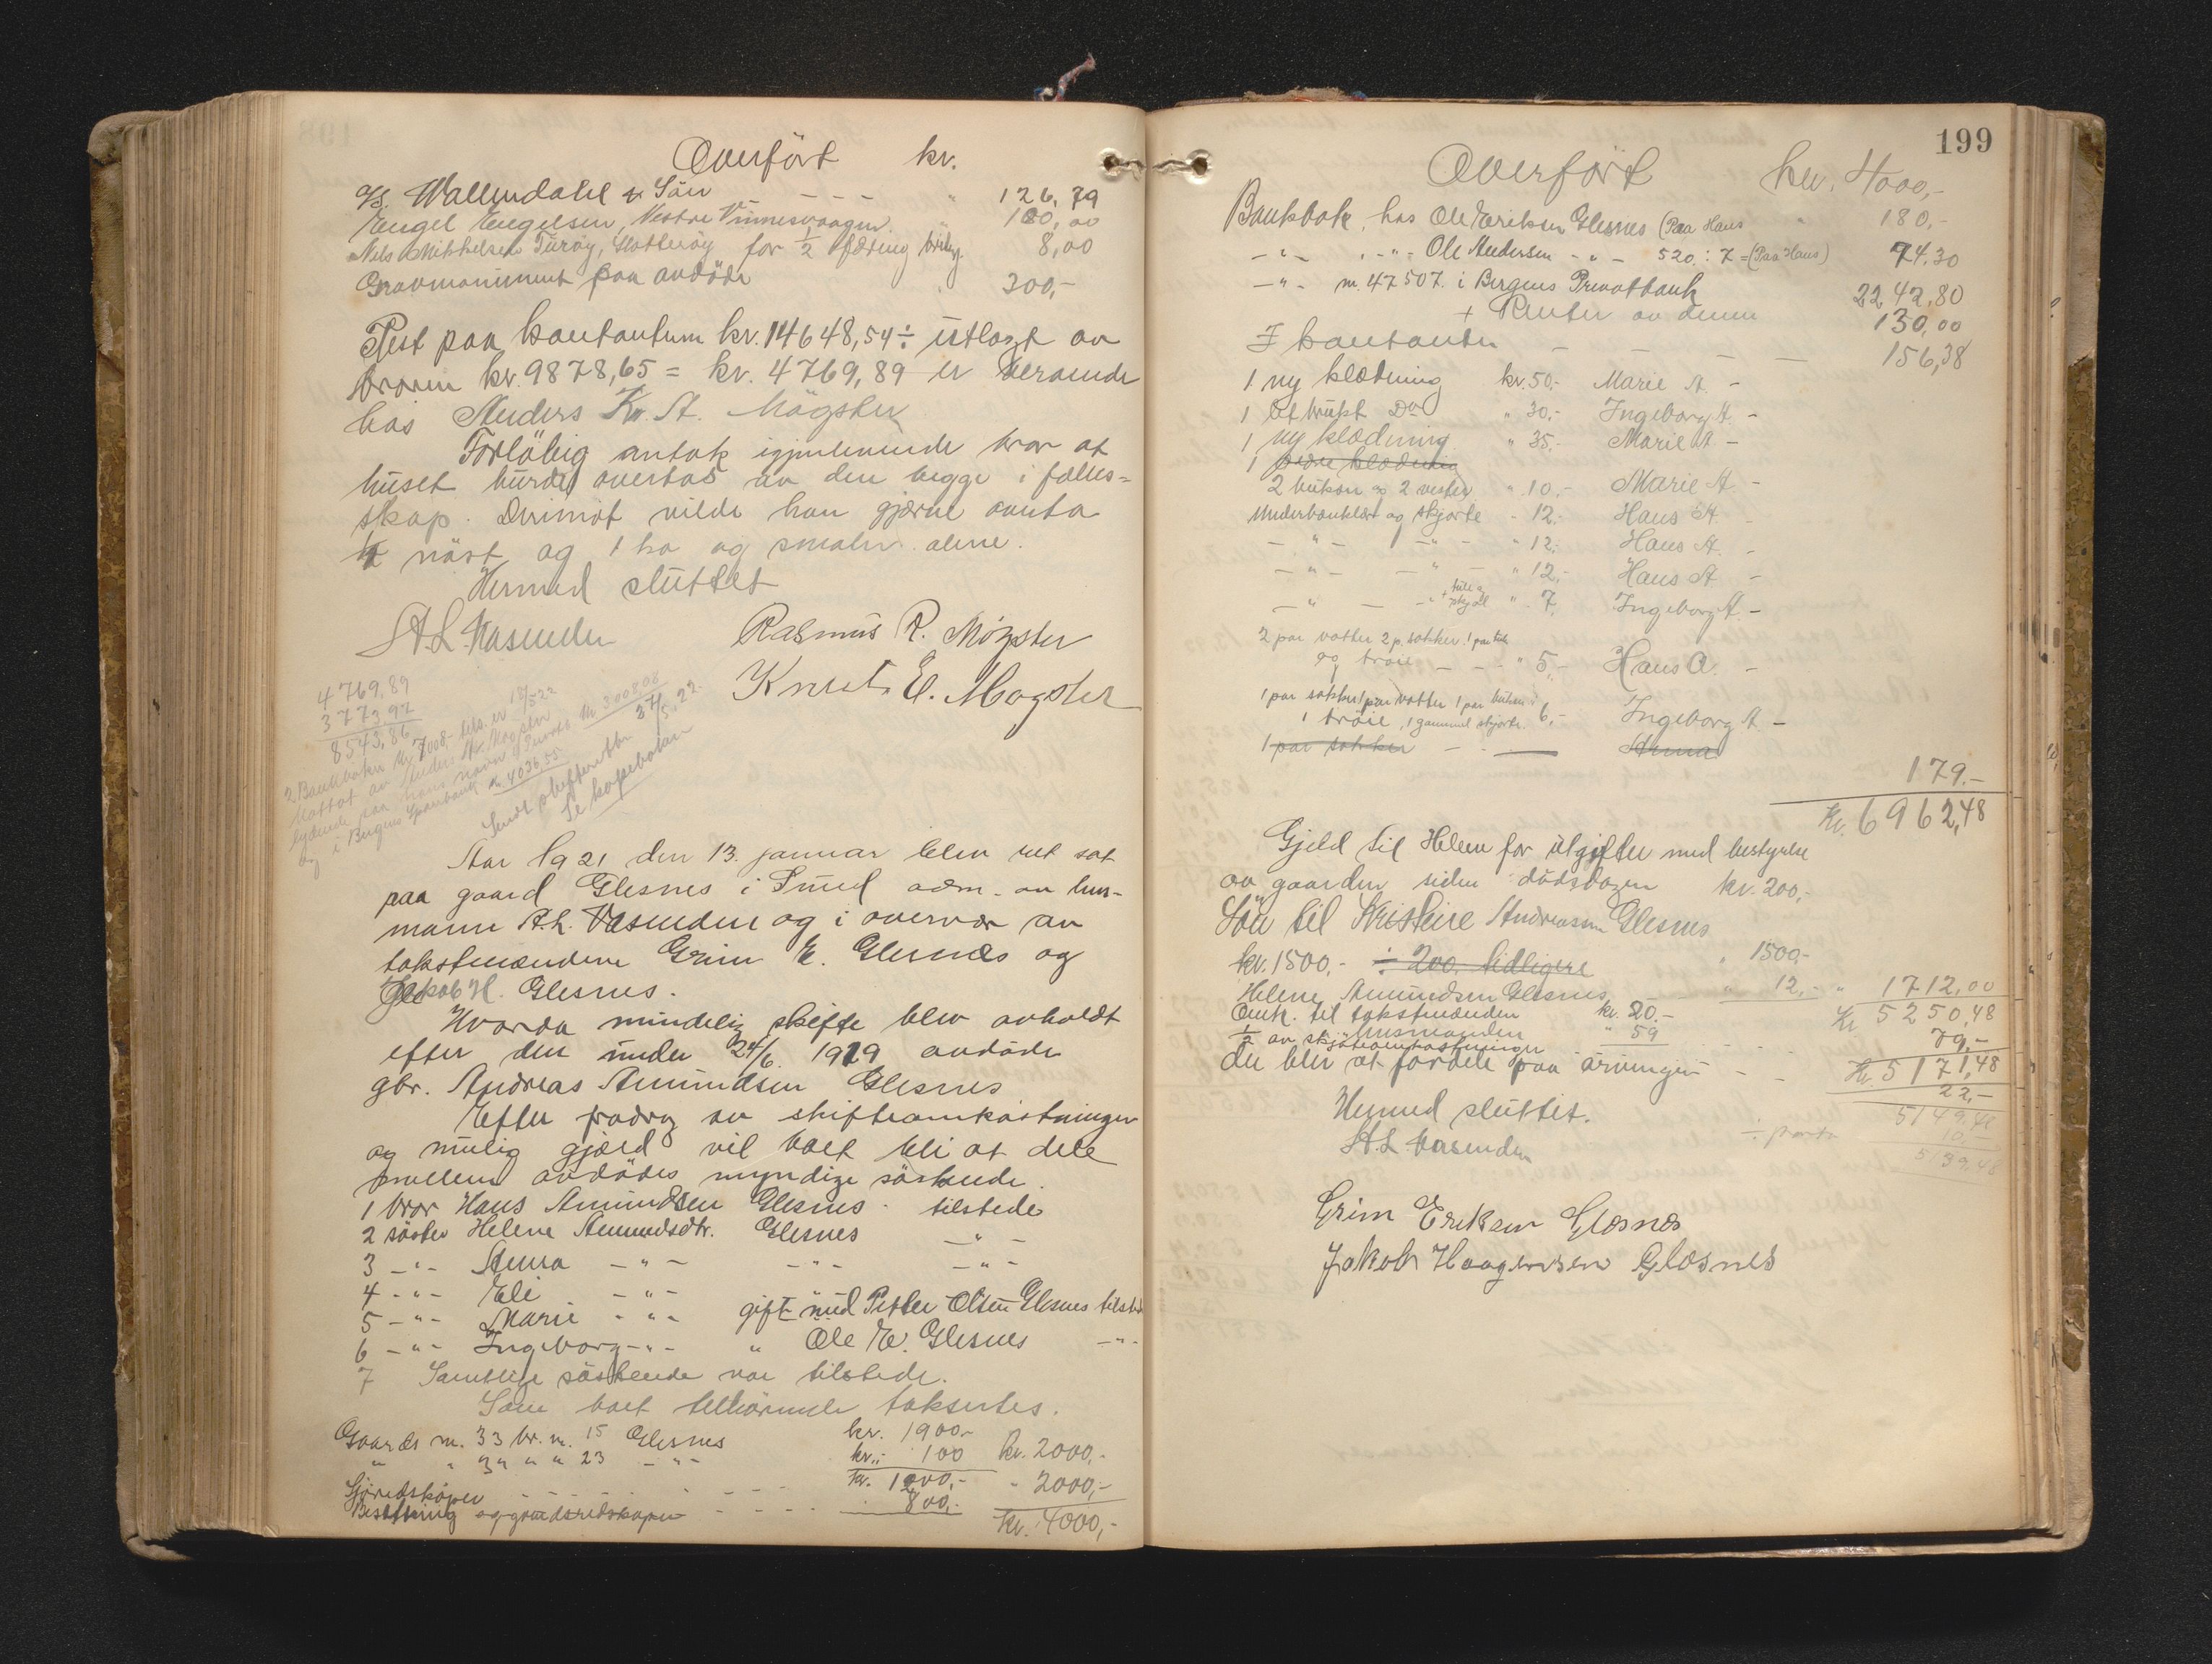 Overført kr.
A/S. Wallendahl & Sön - - - " 126,79
Engel Engelsen, Vestre Vinnesvaagen " 100,00
Nils Mikkelsen Turöy, for ½ færing 8,00
Gravmoniment paa avdöde 300,-
Rest paa kontantum kr. 14648,54 ÷ utlagt av
broren kr. 9878,65 = kr. 4769,89 er beroende
hos Anders Kr. A. Mögster
Forlöbig antok igjenlevende bror at
huset burde overtas av den begge i fælles=
skap. Derimot vilde han gjerne overta
½ nöst og 1 ko og smaler alene.
Hermed sluttet
A.L. Vasenden Rasmus R. Mögster
Knut E. Mögster
4769,89
3773,97
8543,86
2 Bankböker
i Bergens Sparebank 4036,55
Sendt skifteretten 31/5.22
Se kopieboken
Aar 1921 den 13. januar blev ret sat
paa gaard Glesnes i Sund adm. av lens-
mann A.L. Vasenden og i overvær av
takstmændene Grim E. Glesnes og
Jakob H. Glesnes.
Hvorda mindelig skifte blev avholdt
efter den under 24/6. 1919 avdöde
gbr. Andreas Amundsen Glesnes
Efter fradrag av skifteomkostninger
og mulig gjæld vil boet bli at dele
mellem avdödes myndige söskende.
1 bror Hans Amundsen Glesnes - tilstede
2 söster Helene Amundsdtr. Glesnes - " -
3 - " - Anna - " - - " - - " -
4 - " - Eli - " -
5 - " - Marie - " - gift med Petter Olsen Glesnes tilsted
6 - " - Ingeborg - " - " Ole E. Glesnes - " -
7 Samtlige söskende var tilstede.
Som boet tilhörende taksertes.
Gaards n. 33 br. n. 15 Glesnes kr. 1900.-
" " 34 " " 23 - " - kr. 100 kr. 2000,-
Sjöredskaper - - - kr. 1200,- - 2000,-
Besetning og gaardsredskaper - - - 800,-
kr. 4000,-
199
Overfört kr. 4000,-
Bankbok, hos Ole Eriksen Glesnes (Paa Hans " 180,-
- " - - " - Ole Andersen - " - 520 : 7 = (Paa Hans) 74.30
- " - nr. 47507. i Bergens Privatbank 2242,80
+ Renter av denne 130,00
I kontanter - - - - 156,38
1 ny klædning kr. 50,- Marie A. -
1 litt brukt Do " 30,- Ingeborg A -
1 ny klædning " 35,- Marie A -
1 bedre klædning
2 bukser og 2 vester " 10,- Marie A. -
Underbenklær og skjorte - 12,- Hans A. -
- " - - " - " 12,- Hans A. -
- " - - " - " 12,- Hans A -
- " - - " - " 7, Ingeborg A -
2 par votter 2 p. sokker 1 par
og tröie - - - " 5,- Hans A. -
1 par sokker 1 par votter 1 par bukser
1 tröie, 1 gammel skjorte 6,- Ingeborg A -
1 par sokker - - Anna
179.-
Kr. 6962,48
Gjeld til Helene for utgifter med bestyrelse
av gaarden siden dödsdagen kr. 200,-
Lön til Kristine Andreasen Glesnes
kr. 1500,- ÷ 200 tidligere " 1500,-
Helene Amundsen Glesnes " 12,- " 1712,00
Kr 5250,48
Omk. til takstmænden kr. 20.-
lensmanden
½ av skjöteomkostninger " 59 79,-
der blir at fordele paa arvingen - - Kr. 5171,48
22,-
Hermed sluttet. 5149,48
÷ porto 10,-
A.L. Vasenden 5139,48
Grim Eriksen Glesnes
Jakob Haagensen Glesnes